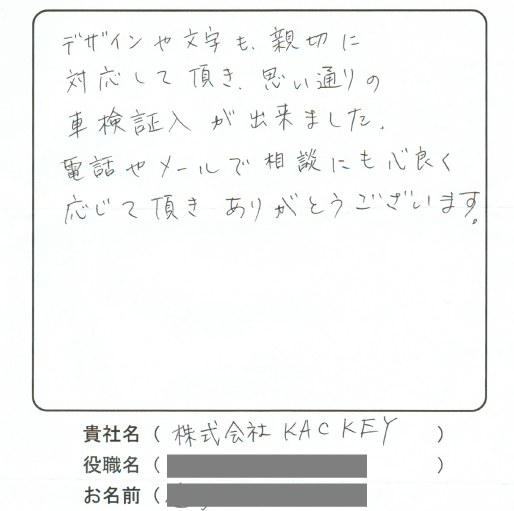 デザインや文字も、親切に
対応して頂き、思い通りの
車検証入が出来ました。
電話やメールで相談にも心良く
応じて頂きありがとうございます。
貴社名（ 株式会社 KACKEY ）
役職名（ ）
お名前（